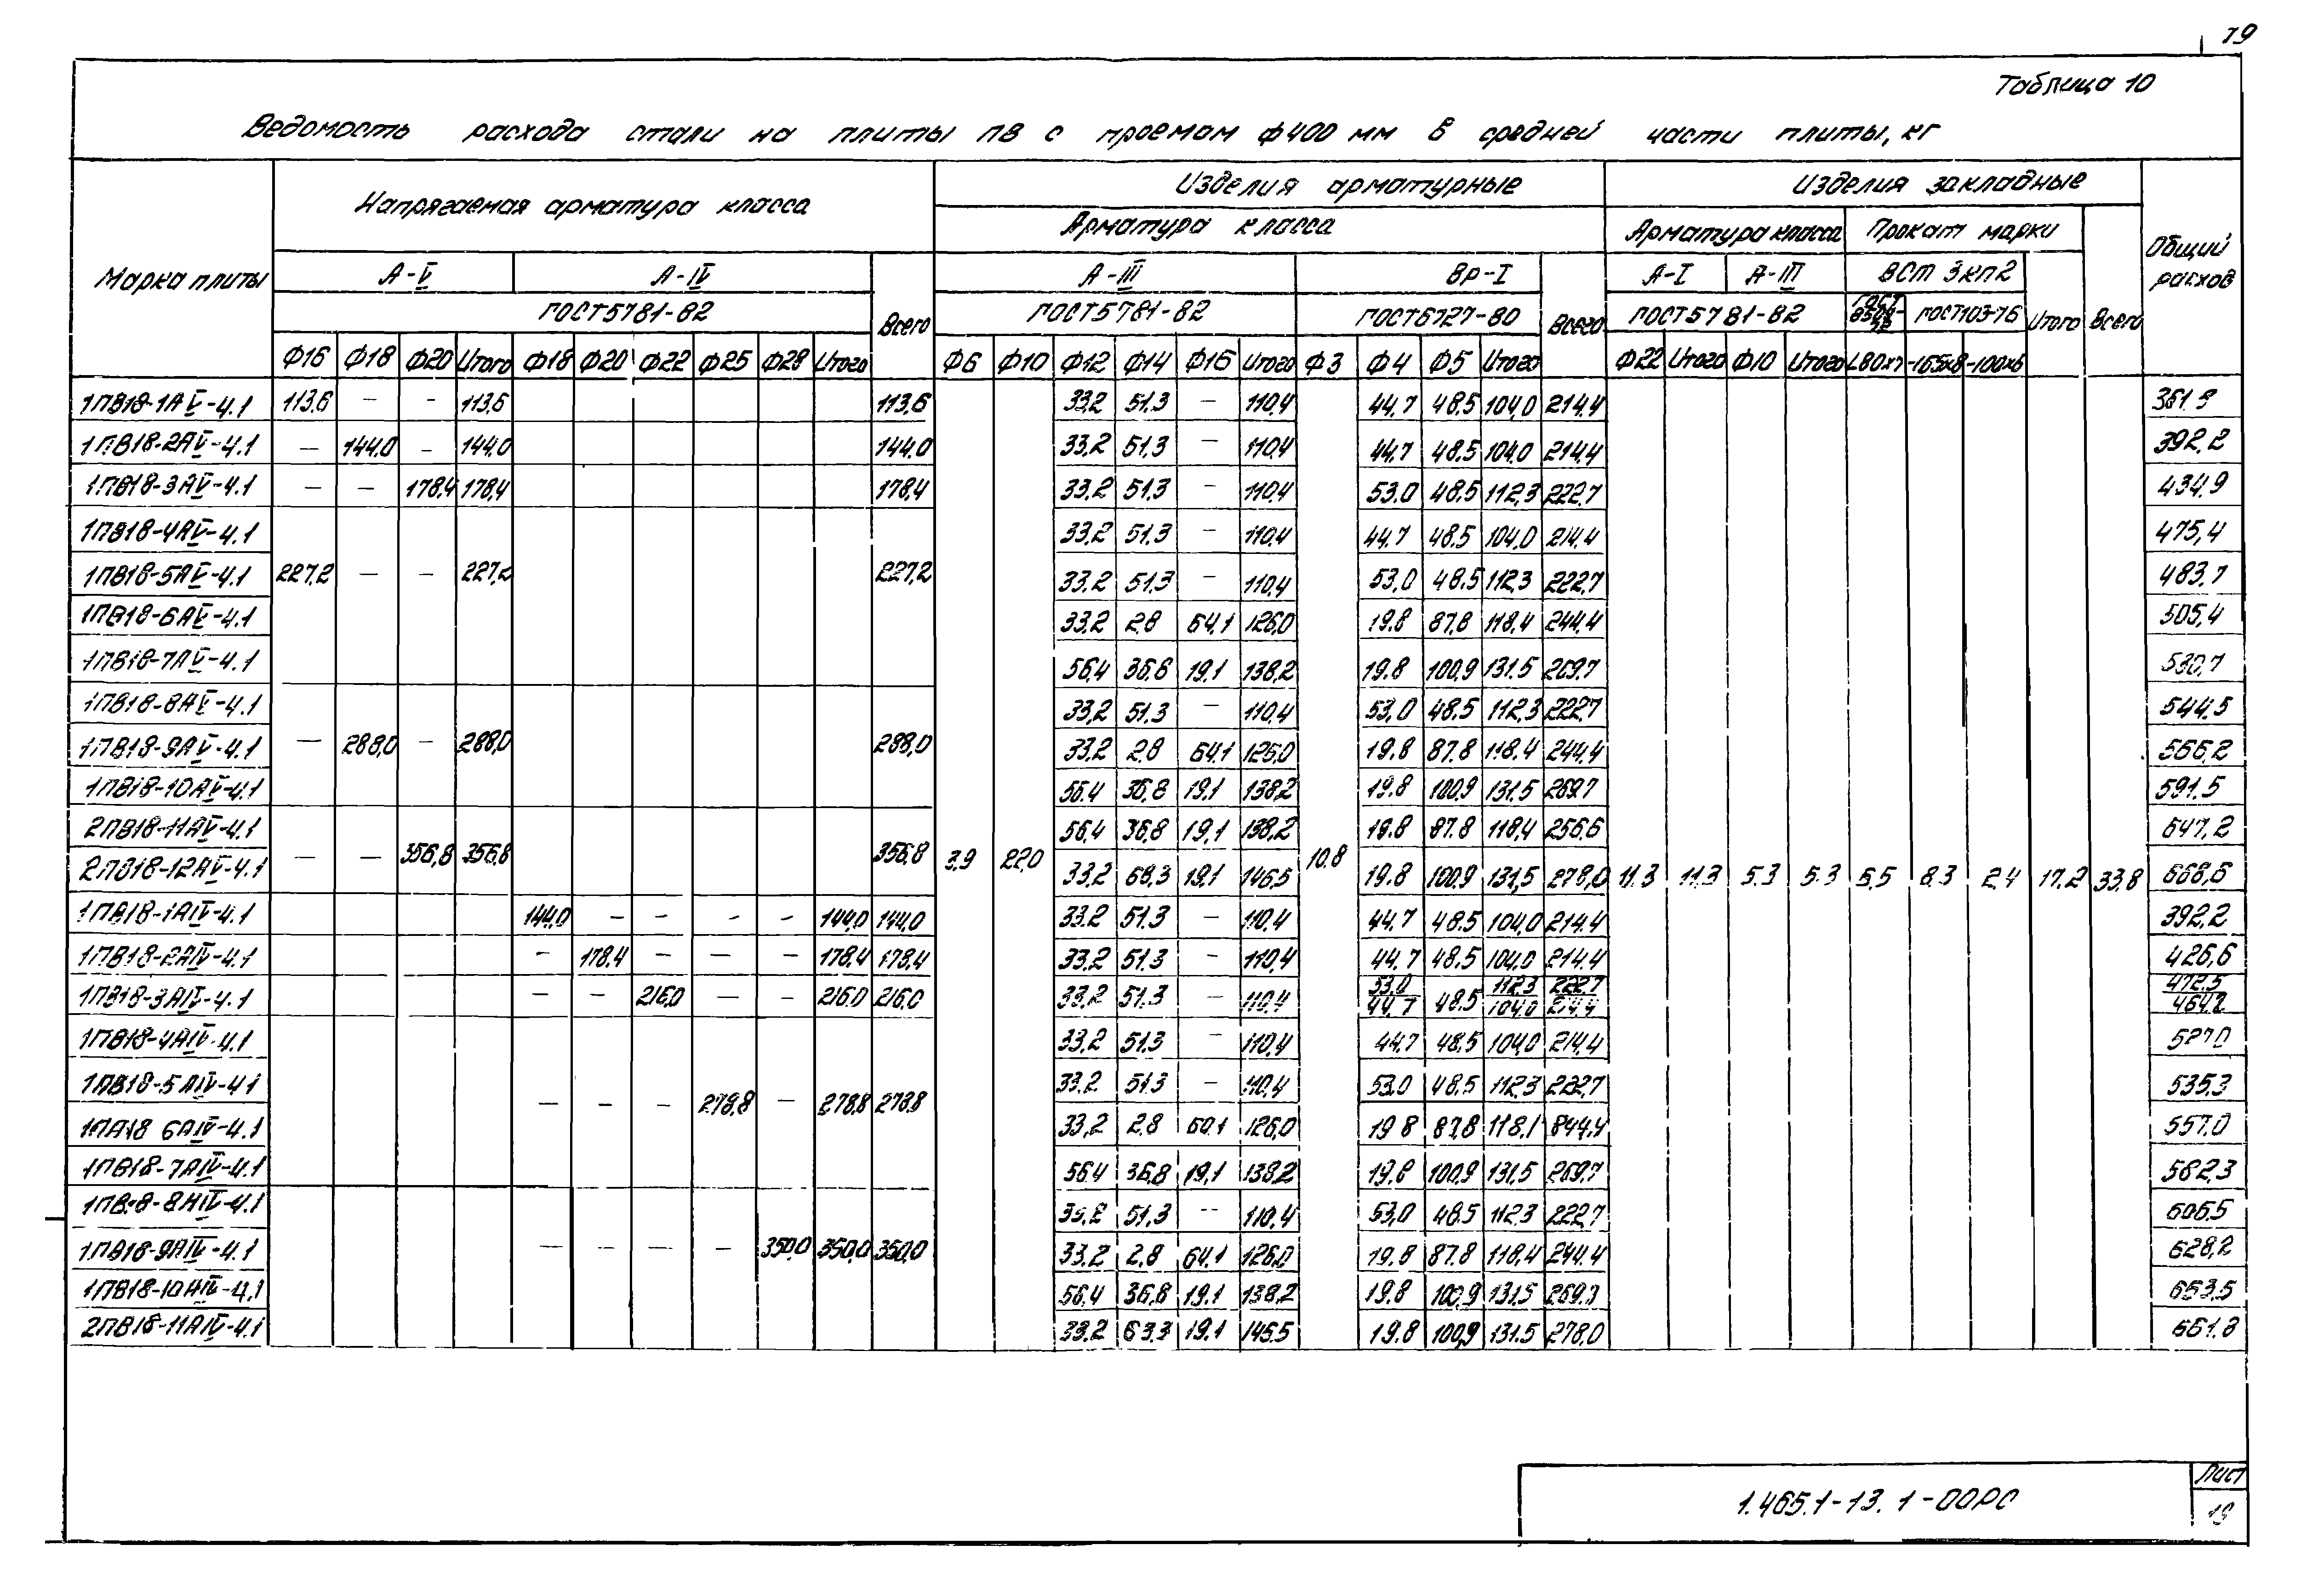 19
Таблица 10
Ведомость расхода стали на плиты ПВ с проемом ф400 мм в средней части плиты, кг
Марка плиты Напрягаемая арматура класса Изделия арматурные Изделия закладные Общий расход
Арматура класса Арматура класса Прокат марки
А-V А-IV Всего А-III Вр-I Всего А-I А-III ВСт 3кп2 Итого Всего
ГОСТ5781-82 ГОСТ5781-82 ГОСТ6727-80 ГОСТ5781-82 ГОСТ103-76
Ф16 Ф18 Ф20 Итого Ф18 Ф20 Ф22 Ф25 Ф28 Итого Ф6 Ф10 Ф12 Ф14 Ф16 Итого Ф3 Ф4 Ф5 Итого Ф22 Итого Ф10 Итого L80х7 -165х8 -100х6
1ПВ18-1АV-4.1 113,6 — - 113,6 113,6 33,2 51.3 — 110,4 44,7 48.5 104,0 214.4 361.9
1ПВ18-2АV-4.1 — 144,0 - 144,0 144,0 33,2 51.3 — 110,4 44,7 48.5 104,0 214.4 392,2
1ПВ18-3АV-4.1 — — 178,4 178,4 178,4 33,2 51.3 — 110,4 53,0 48.5 112,3 222,7 434,9
1ПВ18-4АV-4.1 33,2 51.3 — 110,4 44,7 48.5 104,0 214.4 475,4
1ПВ18-5АV-4.1 227,2 — — 227,2 227,2 33,2 51,3 — 110,4 53,0 48.5 112,3 222,7 483,7
1ПВ18-6АV-4.1 33,2 2.8 64,1 126,0 19.8 87,8 118,4 244,4 505,4
1ПВ18-7АV-4.1 56,4 36.8 19.1 138,2 19.8 100,9 131.5 269.7 530,7
1ПВ18-8АV-4.1 33,2 51.3 — 110,4 53,0 48.5 112,3 222,7 544,5
1ПВ18-9АV-4.1 — 288,0 — 288,0 288,0 33,2 2.8 64.1 126,0 19.8 87.8 118,4 244,4 566,2
1ПВ18-10АV-4.1 56.4 36,8 19.1 138,2 19.8 100,9 131.5 269,7 591.5
2ПВ18-11АV-4.1 56,4 36,8 19,1 138,2 19.8 87.8 118,4 256,6 647,2
2ПВ18-12АV-4.1 — — 356,8 356,8 356,8 3,9 22,0 33,2 68,3 19,1 146,5 10.8 19.8 100,9 131,5 278,0 11.3 11.3 5.3 5.3 5,5 8.3 2.4 17,2 33,8 668,6
1ПВ18-1АIV-4.1 144,0 — — - - 144,0 144,0 33.2 51.3 — 110,4 44.7 48.5 104,0 214.4 392,2
1ПВ18-2АIV-4.1 — 178,4 — — — 178,4 178,4 33,2 51.3 — 110,4 44,7 48.5 104,0 214.4 426,6
1ПВ18-3АIV-4.1 — — 216,0 — — 216,0 216,0 33,2 51.3 — 110,4 53,0/44.7 48.5 112,3/104,0 222,7/214.4 472,5/464,2
1ПВ18-4АIV-4.1 33,2 51.3 — 110,4 44,7 48,5 104,0 214.4 527,0
1ПВ18-5АIV-4.1 33,2 51.3 — 110,4 53,0 48.5 112,3 222,7 535,3
— — — 278,8 — 278,8 278,8
1ПА18 6АIV-4.1 33,2 2.8 126,0 19 8 87,8 118,1 844,4 557.0
1ПВ18-7АIV-4.1 56.4 36,8 19,1 138,2 19.8 100,9 131,5 269,7 582,3
8АIV-4.1 51.3 -- 110,4 53,0 48.5 112,3 222,7 606,5
1ПВ18-9АIV-4.1 — — — — 350,0 350,0 350,0 33,2 2.8 64.1 126,0 19.8 87.8 118,4 244.4 628,2
1ПВ18-10АIV-4.1 56,4 36,8 19.1 138,2 19.8 100,9 131,5 653,5
2ПВ18-11АIV-4.1 33,2 63.3 19.1 146,5 19.8 100,9 131.5 278,0 661.8
1.465.1-13. 1-00РС Лист
19